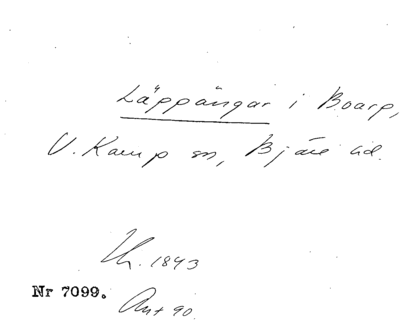 Läppängar i Boarp,
V. Karup sn, Bjäre hd.
Th. 1843
Nr 7099.
Ant 90.